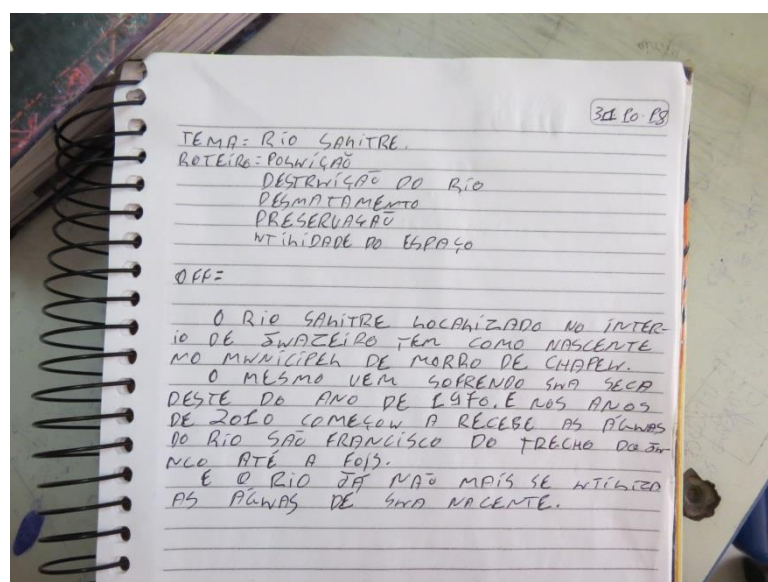 31 10 18
TEMA: RIO SALITRE.
ROTEIRO: POLUIÇÃO
DESTRUIÇÃO DO RIO
DESMATAMENTO
PRESERVAÇÃO
UTILIDADE DO ESPAÇO
OFF:
O RIO SALITRE LOCALIZADO NO INTER-
IO DE JUAZEIRO TEM COMO NASCENTE
NO MUNICIPEL DE MORRO DE CHAPEU.
O MESMO VEM SOFRENDO SUA SECA
DESTE DO ANO DE 1970. E NOS ANOS
DE 2010 COMEÇOU A RECEBE AS ÁGUAS
DO RIO SÃO FRANCISCO DO TRECHO DO JU-
NCO ATÉ A FOIS.
E O RIO JÁ NÃO MAIS SE UTILIZA
AS ÁGUAS DE SUA NACENTE.